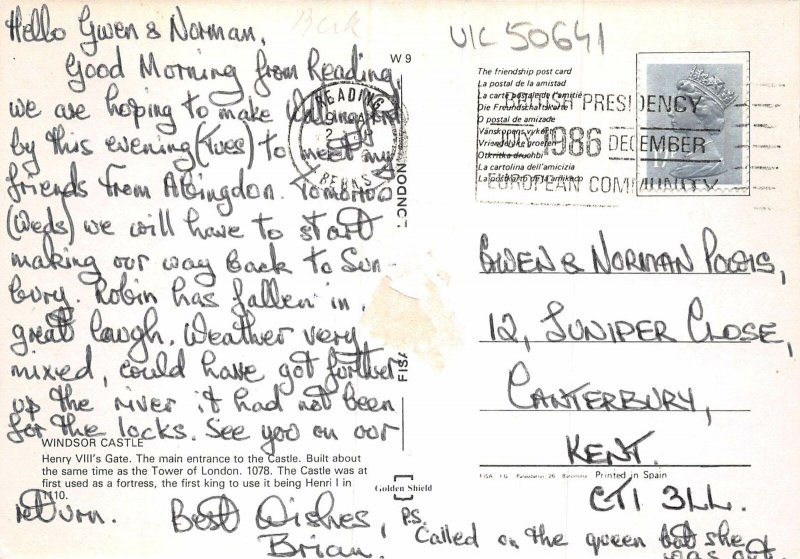 Hello Gwen & Norman,
Good Morning from Reading
we are hoping to make Wallingford
by this evening (Tues) to meet my
friends from Abingdon. Tomorrow
(Weds) we will have to start
making our way back to Sun-
bury. Robin has fallen in,
great laugh. Weather very
mixed, could have got further
up the river it had not been
for the locks. See you on our
return. Best Wishes,
Brian.
P.S. Called on the queen but she
was out.
WINDSOR CASTLE
Henry VIII's Gate. The main entrance to the Castle. Built about
the same time as the Tower of London. 1078. The Castle was at
first used as a fortress, the first king to use it being Henri I in
1110.
Berk
W 9
LONDON
FISA
Golden Shield
UIC 50641
READING
BERKS
The friendship post card
La postal de la amistad
La carte postale de l'amitié
Die Freundschaftskarte
O postal de amizade
Vänskapens vykort
Vriendelijke groeten
Otkritka druohbi
La cartolina dell'amicizia
La poŝtkarto de la amikaro
BRITISH PRESIDENCY
JULY 1986 DECEMBER
EUROPEAN COMMUNITY
GWEN & NORMAN POWIS,
12, JUNIPER CLOSE,
CANTERBURY,
KENT.
FISA I.G. Palaudarias 26 Barcelona Printed in Spain
CT1 3LL.